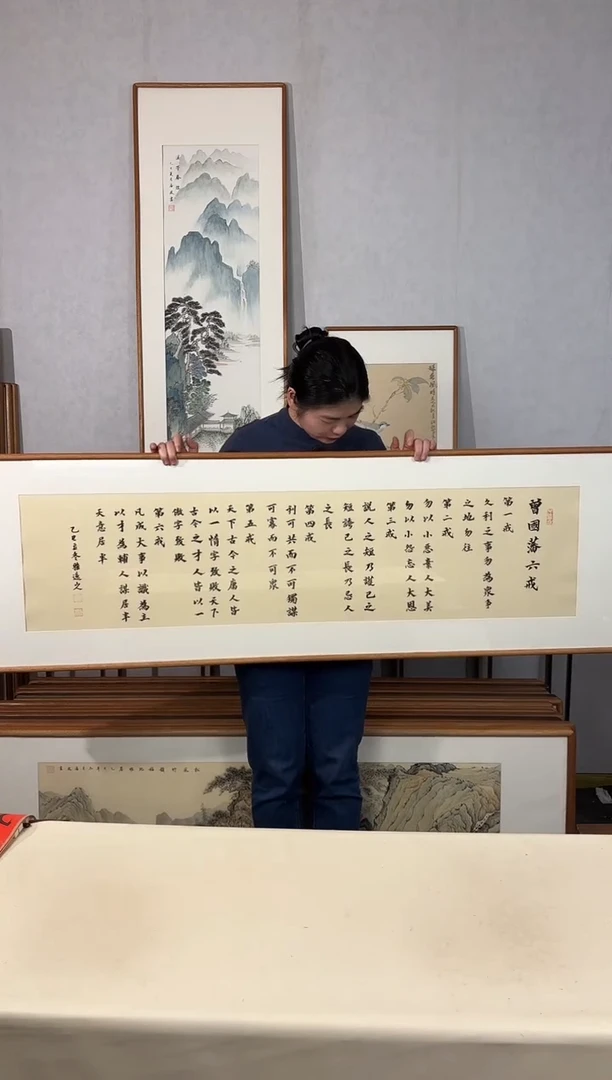 曾國藩六戒
第一戒
久利之事勿為衆争
之地勿往
第二戒
勿以小惡棄人大美
勿以小怨忘人大恩
第三戒
説人之短乃護己之
短誇己之長乃忌人
之長
第四戒
利可共而不可獨謀
可寡而不可衆
第五戒
天下古今之庸人皆
以一惰字致敗天下
古今之才人皆以一
傲字致敗
第六戒
凡成大事以識為主
以才為輔人謀居半
天意居半
乙巳